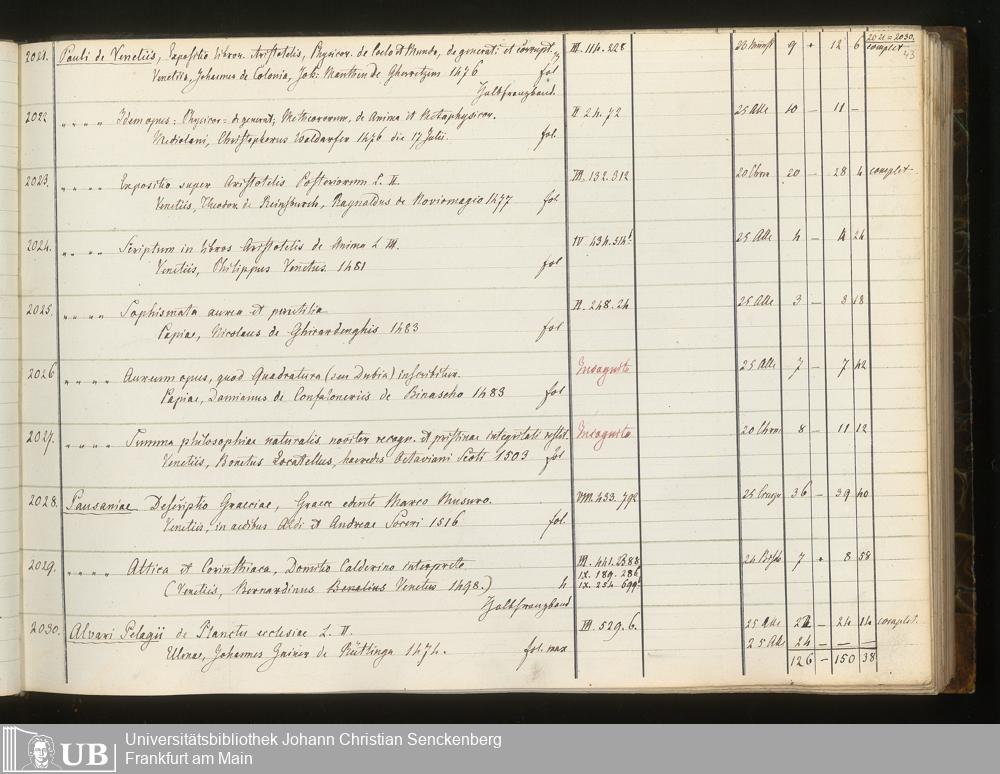 2021. Pauli de Venetiis, Expositio libror. Aristotelis, Physicor. de Coelo et Mundo, de generat: et corrupt. III. 114. 228 9 12 6 2021 = 2030. complet 43
Venetiis, Johannes de Colonia, Joh: Manthen de Gherretzem 1476 fol
Halbfranzband
2022 " " " " Idem opus: Physicor= de generat; Metheororum, de Anima et Metaphysicor. II 24. 72 25 Alle 10 — 11 —
Mediolani, Christophorus Valdarfer 1476 die 17 Julii. fol.
2023. " " " " Expositio super Aristotelis Posteriorum L. II. III. 132. 312 20 20 — 28 4 complet.
Venetiis, Theodor. de Reinsburch, Raynaldus de Noviomagio 1477 fol
2024. " " " " Scriptum in libros Aristotelis de Anima L III. IV 434. 514 25 Alle 4 — 4 24
Venetiis, Philippus Venetus. 1481 fol
2025. " " " " Sophismata aurea et perutilia II. 248. 24 25 Alle 3 — 3 18
Papiae, Nicolaus de Ghirardenghis 1483 fol
2026 " " " " Aureum opus, quod Quadratura (seu Dubia) inscribitur. Incognito 25 Alle 7 — 7 42
Papiae, Damianus de Confaloneriis de Binascho 1483 fol
2027. " " " " Summa philosophiae naturalis noviter recogn. et pristinae integritati restit. Incognito 20 8 — 11 12
Venetiis, Bonetus Locatellus, haeredes Octaviani Scoti 1503 fol
2028. Pausaniae Descriptio Graeciae, Graece edente Marco Musuro. VIII. 433. 792 25 36 — 39 40
Venetiis, in aedibus Aldi et Andreae Soceri 1516 fol.
2029. " " " " Attica et Corinthiaca, Domitio Calderino interprete III. 441. 2388 24 7 8 58
(Venetiis, Bernardinus Benalius Venetus 1498.) 4 IX. 189. 286
IX. 254. 699
Halbfranzband
2030. Alvari Pelagii de Planctu ecclesiae L. II. III. 529. 6. 25 Alle 22 — 24 14 complet.
Ulmae, Johannes Zainer de Rütlinga 1474. fol. max 25 Alle 24 — — —
126 — 150 38
UB Universitätsbibliothek Johann Christian Senckenberg
Frankfurt am Main